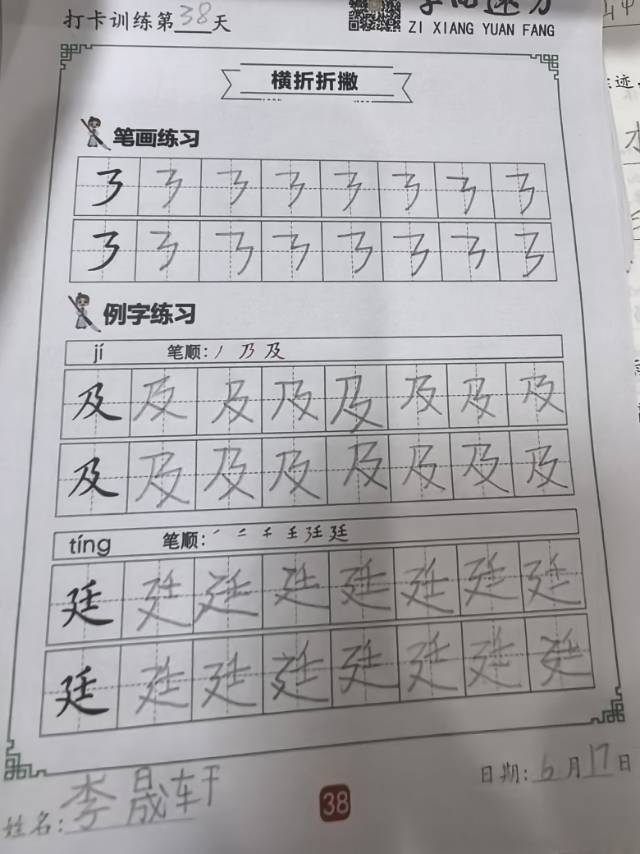 打卡训练第38天
ZI XIANG YUAN FANG
横折折撇
笔画练习
例字练习
jí 笔顺: 丿 乃 及
及 及 及 及 及 及 及 及
及 及 及 及 及 及 及 及
tíng 笔顺:
廷 廷 廷 廷 廷 廷 廷 廷
廷 廷 廷 廷 廷 廷 廷 廷
姓名: 李晟轩
38
日期: 6月17日